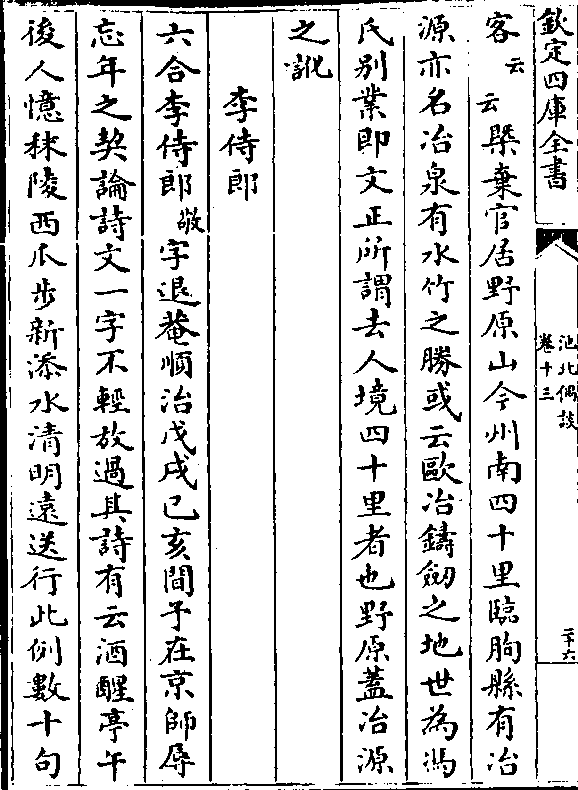 欽定四庫全書
池北偶談
卷十三
二十六
客云云槩棄官居野原山今州南四十里臨朐縣有冶
源亦名冶泉有水竹之勝或云歐冶鑄劒之地世為馮
氏别業即文正所謂去人境四十里者也野原蓋冶源
之訛
李侍郎
六合李侍郎敬字退菴順治戊戌已亥間予在京師辱
忘年之契論詩文一字不輕放過其詩有云酒醒亭午
後人憶秣陵西爪步新添水清明遠送行此例數十句